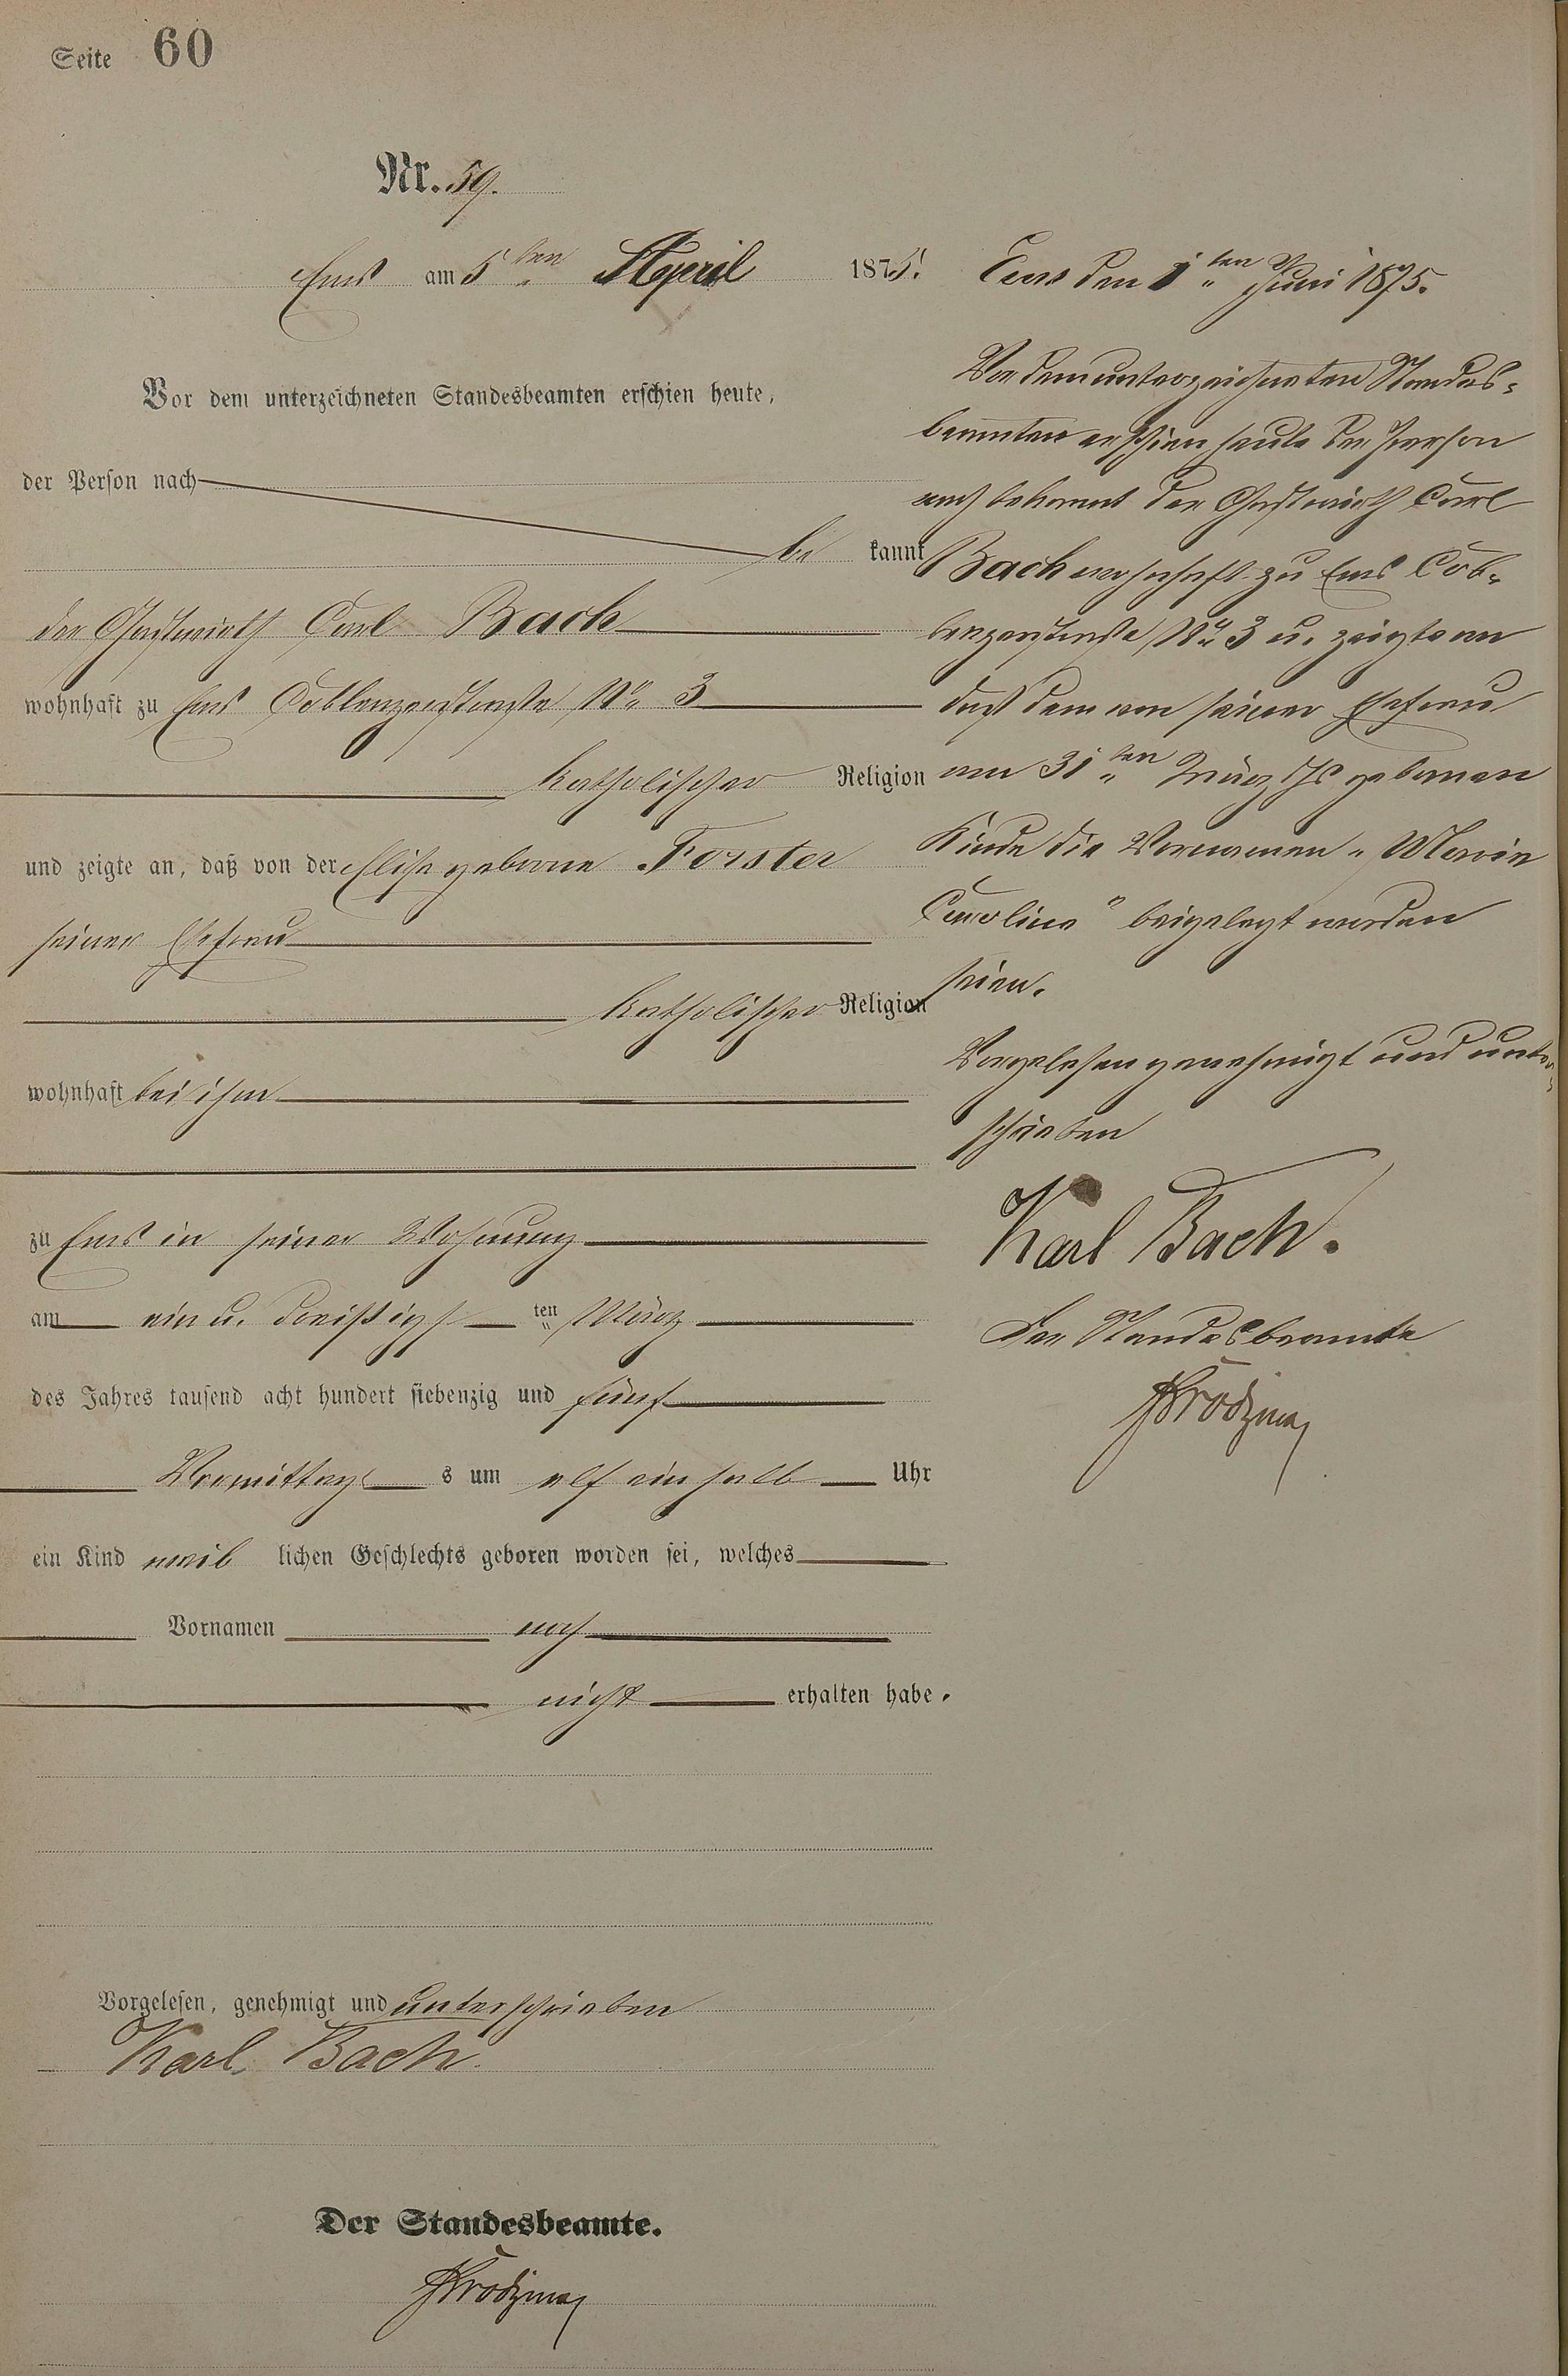 Seite 60
Nr. 59.
Ems am 5ten April 1875.
Vor dem unterzeichneten Standesbeamten erschien heute,
der Person nach
be kannt
der Gastwirth Carl Bach
wohnhaft zu Ems Coblenzerstraße No 3
katholischer Religion
und zeigte an, daß von der Elise geborne Forster
seiner Ehefrau
katholischer Religion
wohnhaft bei ihm
zu Ems in seiner Wohnung
am ein u. dreißigs ten März
des Jahres tausend acht hundert siebenzig und fünf
Vormittag s um elf einhalb Uhr
ein Kind weib lichen Geschlechts geboren worden sei, welches
Vornamen noch
nicht erhalten habe.
Vorgelesen, genehmigt und unterschrieben
Karl Bach.
Der Standesbeamte.
Ems den 1ten Juni 1875.
Vor dem unterzeichneten Standes-
beamten erschien heute der Person
nach bekannt der Gastwirth Carl
Bach wohnhaft zu Ems Cob-
lenzerstraße No 3 u. zeigte an
daß dem von seiner Ehefrau
am 31ten März Js geborenen
Kinde die Vornamen „Maria
Carolina" beigelegt worden
seien.
Vorgelesen genehmigt und unter-
schrieben
Karl Bach.
Der Standesbeamte